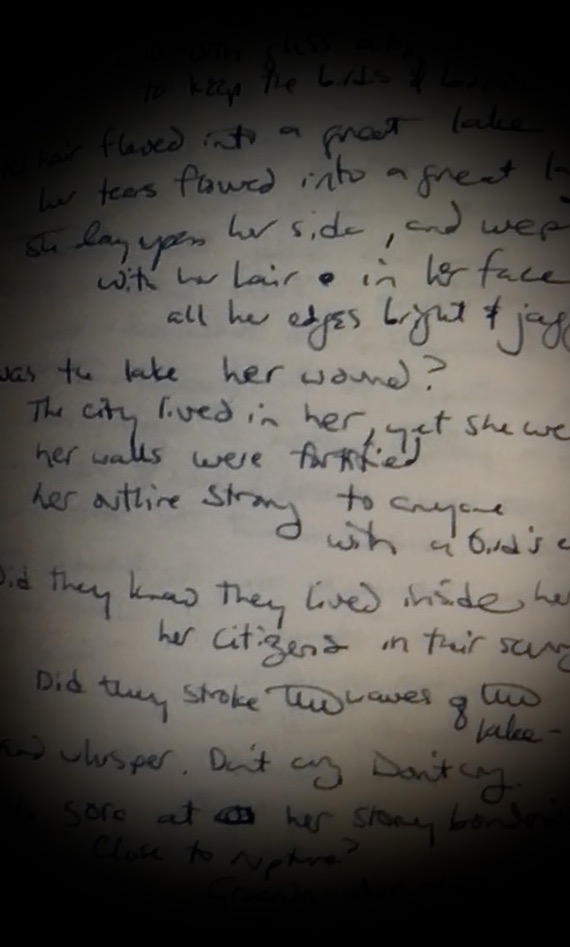 to keep the birds &
hair flowed into a great lake
her tears flowed into a great
she lay upon her side, and wep
with her hair in her face
all her edges bright & jag
was the lake her wound?
The city lived in her, yet she we
her walls were fortified
her outline strong to anyone
with a bird's e
Did they know they lived inside her
her citizens in their
Did they stroke the waves of the
lake-
and whisper. Don't cry Don't cry.
sore at her stony
Close to rupture?